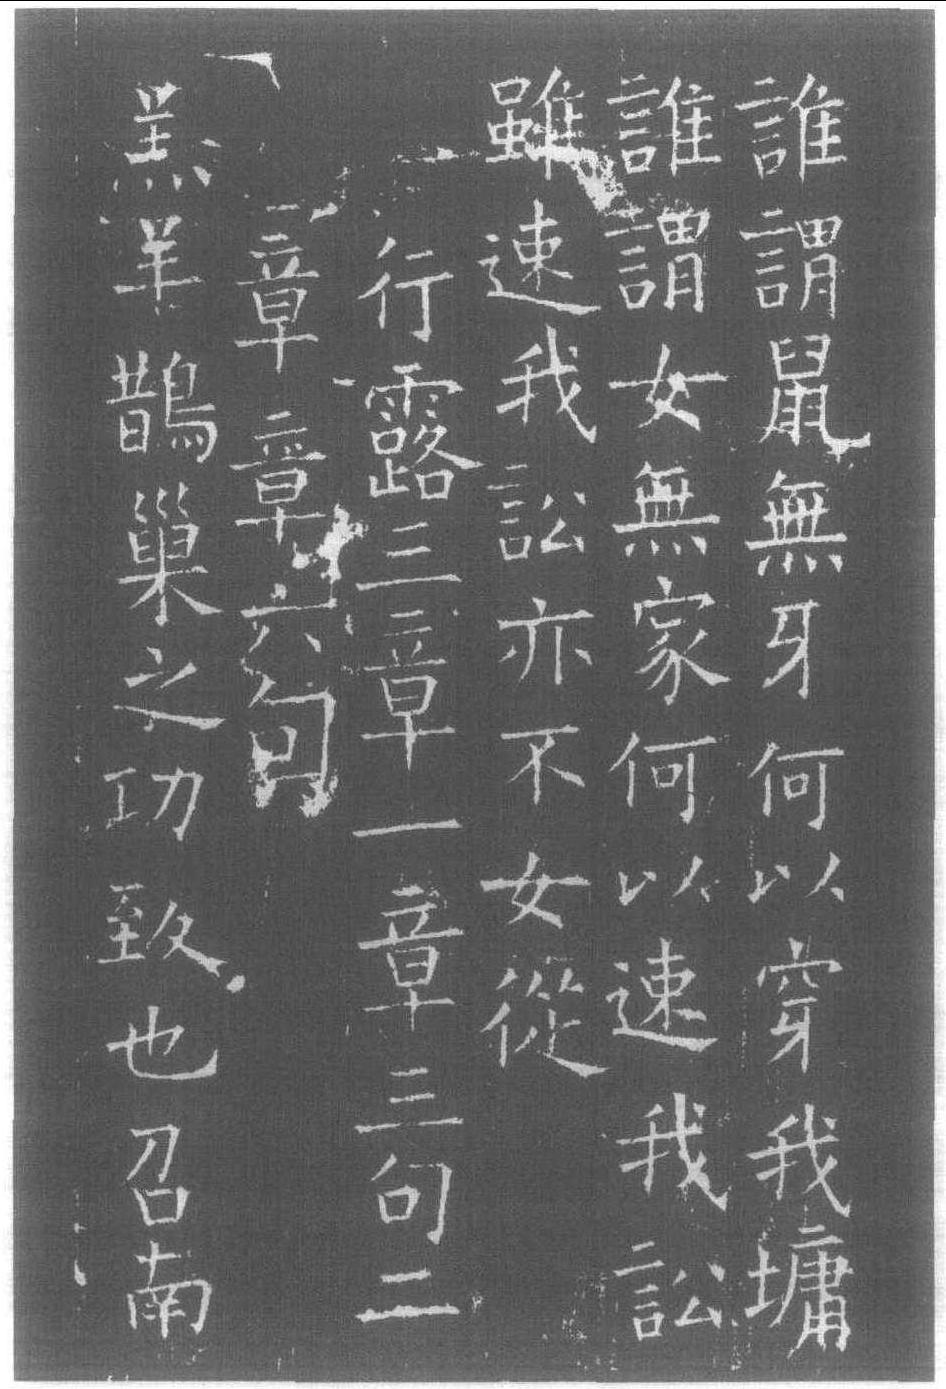 誰謂鼠無牙何以穿我墉
誰謂女無家何以速我訟
雖速我訟亦不女從
行露三章一章三句二
章章六句
羔羊鵲巢之功致也召南